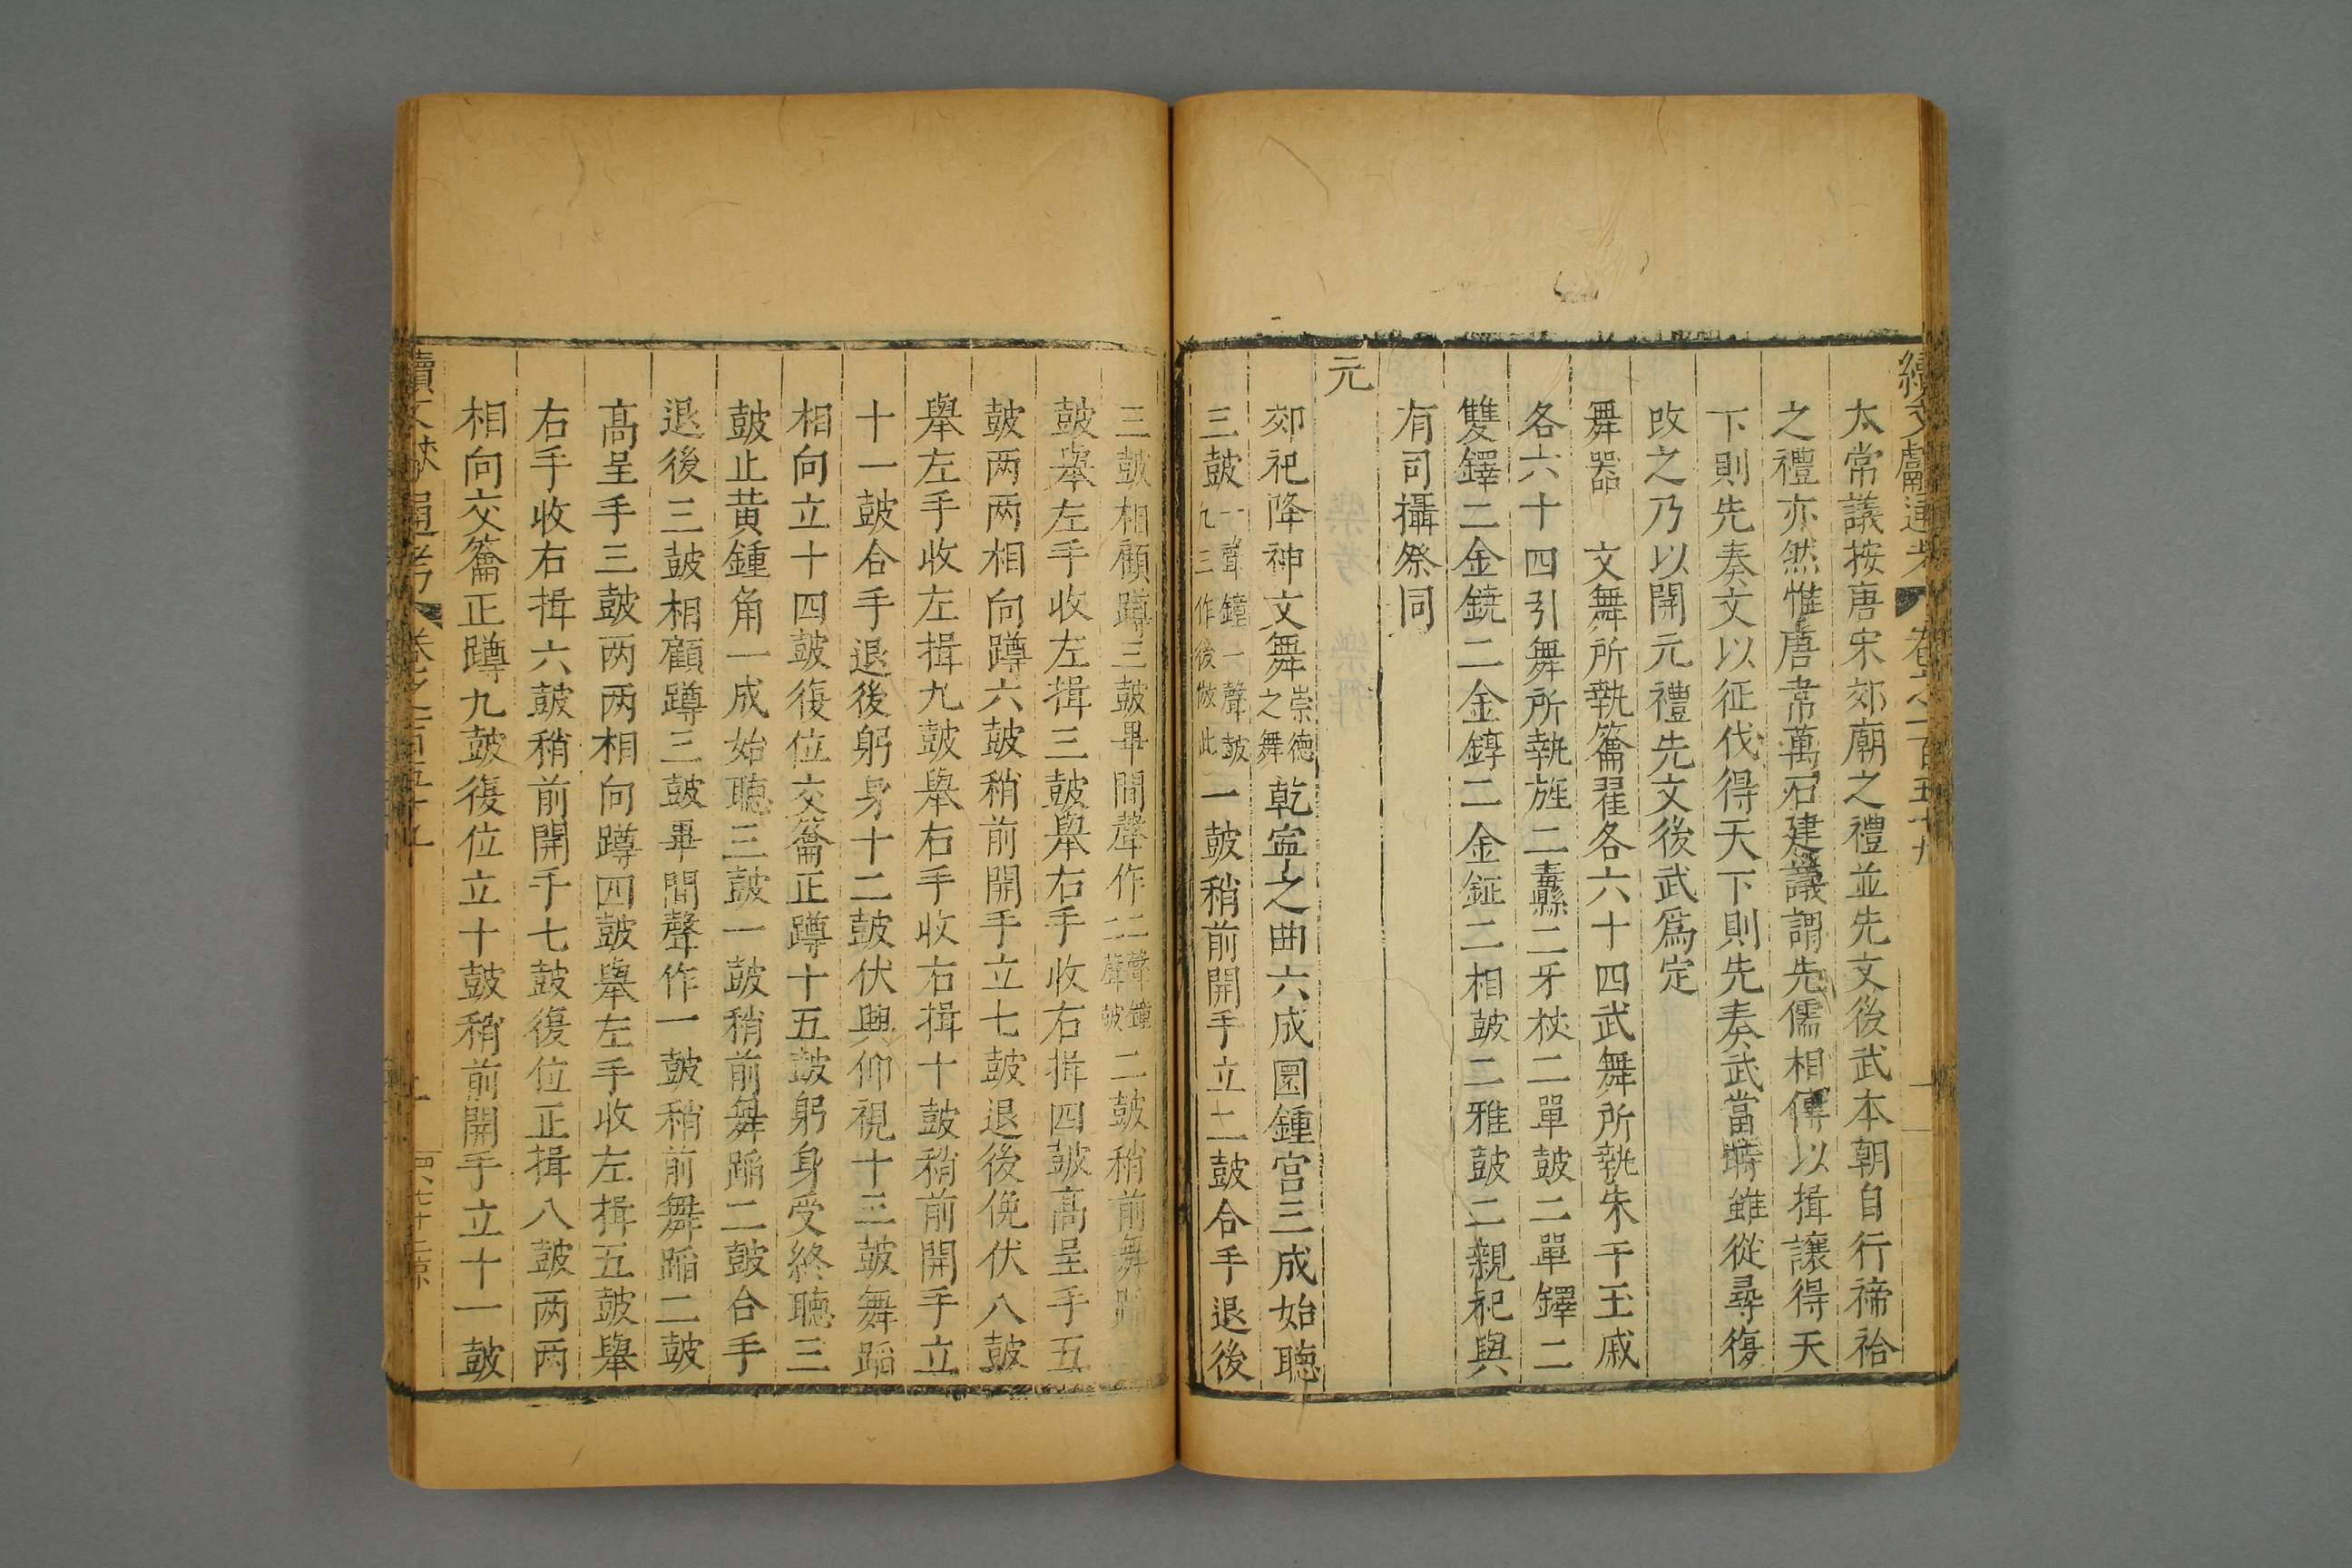 續文獻通考 卷之一百五十九
太常議按唐宋郊廟之禮並先文後武本朝自行禘祫
之禮亦然惟唐韋萬石建議謂先儒相傳以揖讓得天
下則先奏文以征伐得天下則先奏武當時雖從尋復
改之乃以開元禮先文後武爲定
舞器 文舞所執籥翟各六十四武舞所執朱干玉戚
各六十四引舞所執旌二纛二牙杖二單鼓二單鐸二
雙鐸二金鐃二金錞二金鉦二相鼓二雅鼓二親祀與
有司攝祭同
元
郊祀降神文舞崇德之舞乾寍之曲六成圜鍾宮三成始聽
三鼓一聲鐘一聲鼓凡三作後倣此一鼓稍前開手立二鼓合手退後
三鼓相顧蹲三鼓畢間聲作二聲鐘二聲鼓二鼓稍前舞蹈
鼓舉左手收左揖三鼓舉右手收右揖四鼓高呈手五
鼓两两相向蹲六鼓稍前開手立七鼓退後俛伏八鼓
舉左手收左揖九鼓舉右手收右揖十鼓稍前開手立
十一鼓合手退後躬身十二鼓伏興仰視十三鼓舞蹈
相向立十四鼓復位交籥正蹲十五鼓躬身受終聽三
鼓止黄鍾角一成始聽三鼓一鼓稍前舞蹈二鼓合手
退後三鼓相顧蹲三鼓畢間聲作一鼓稍前舞蹈二鼓
高呈手三鼓两两相向蹲四鼓舉左手收左揖五鼓舉
右手收右揖六鼓稍前開手七鼓復位正揖八鼓两两
相向交籥正蹲九鼓復位立十鼓稍前開手立十一鼓
續文獻通考 卷之一百五十九